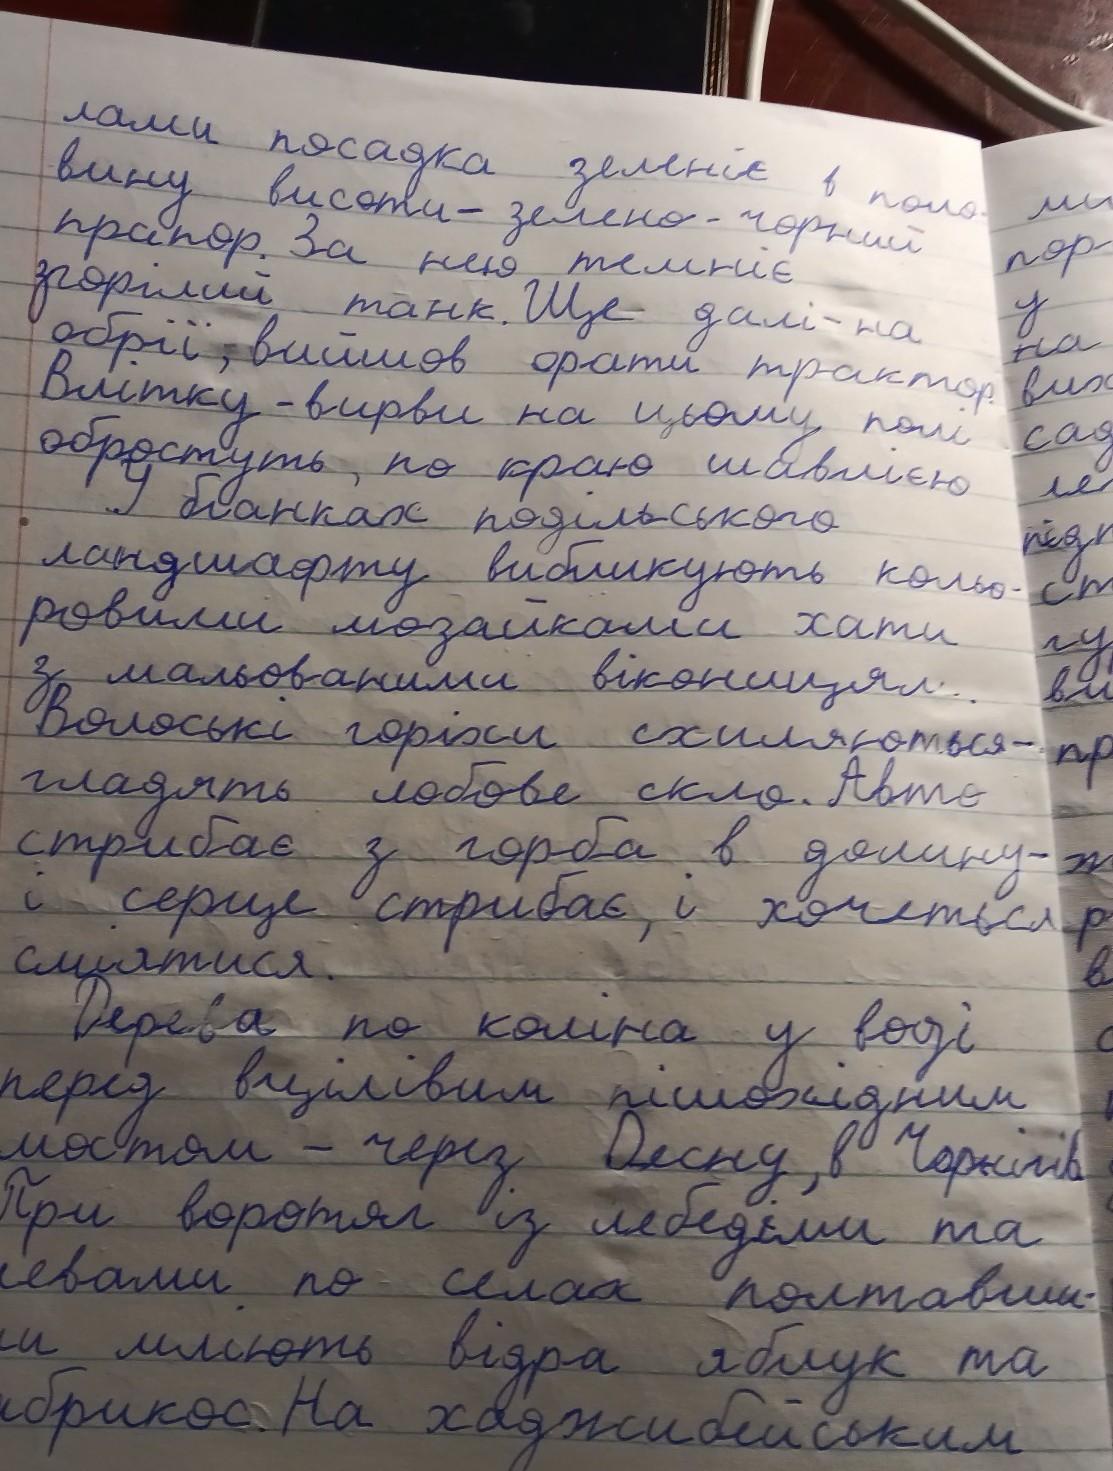 лами посадка зеленіє в поло-
вину висоти - зелено-чорний
прапор. За нею темніє
згорілий танк. Ще далі - на
обрії, вийшов орати трактор.
Влітку - вирви на цьому полі
обростуть, по краю шавлією
У бганках подільського
ландшафту вибликують кольо-
ровими мозаїками хати
з мальованими віконицям.
Волоські горіхи схиляються -
гладять лобове скло. Авто
стрибає з горба в долину -
і серце стрибає, і хочеться
сміятися.
Дерева по коліна у воді
перед вцілівим пішохідним
мостом - через Десну, в Чернігів
При воротял із лебедями та
левами по селах полтавщи-
ни мліють відра яблук та
абрикос. На хаджибейським
ми
пор-
у
на
вих
сад